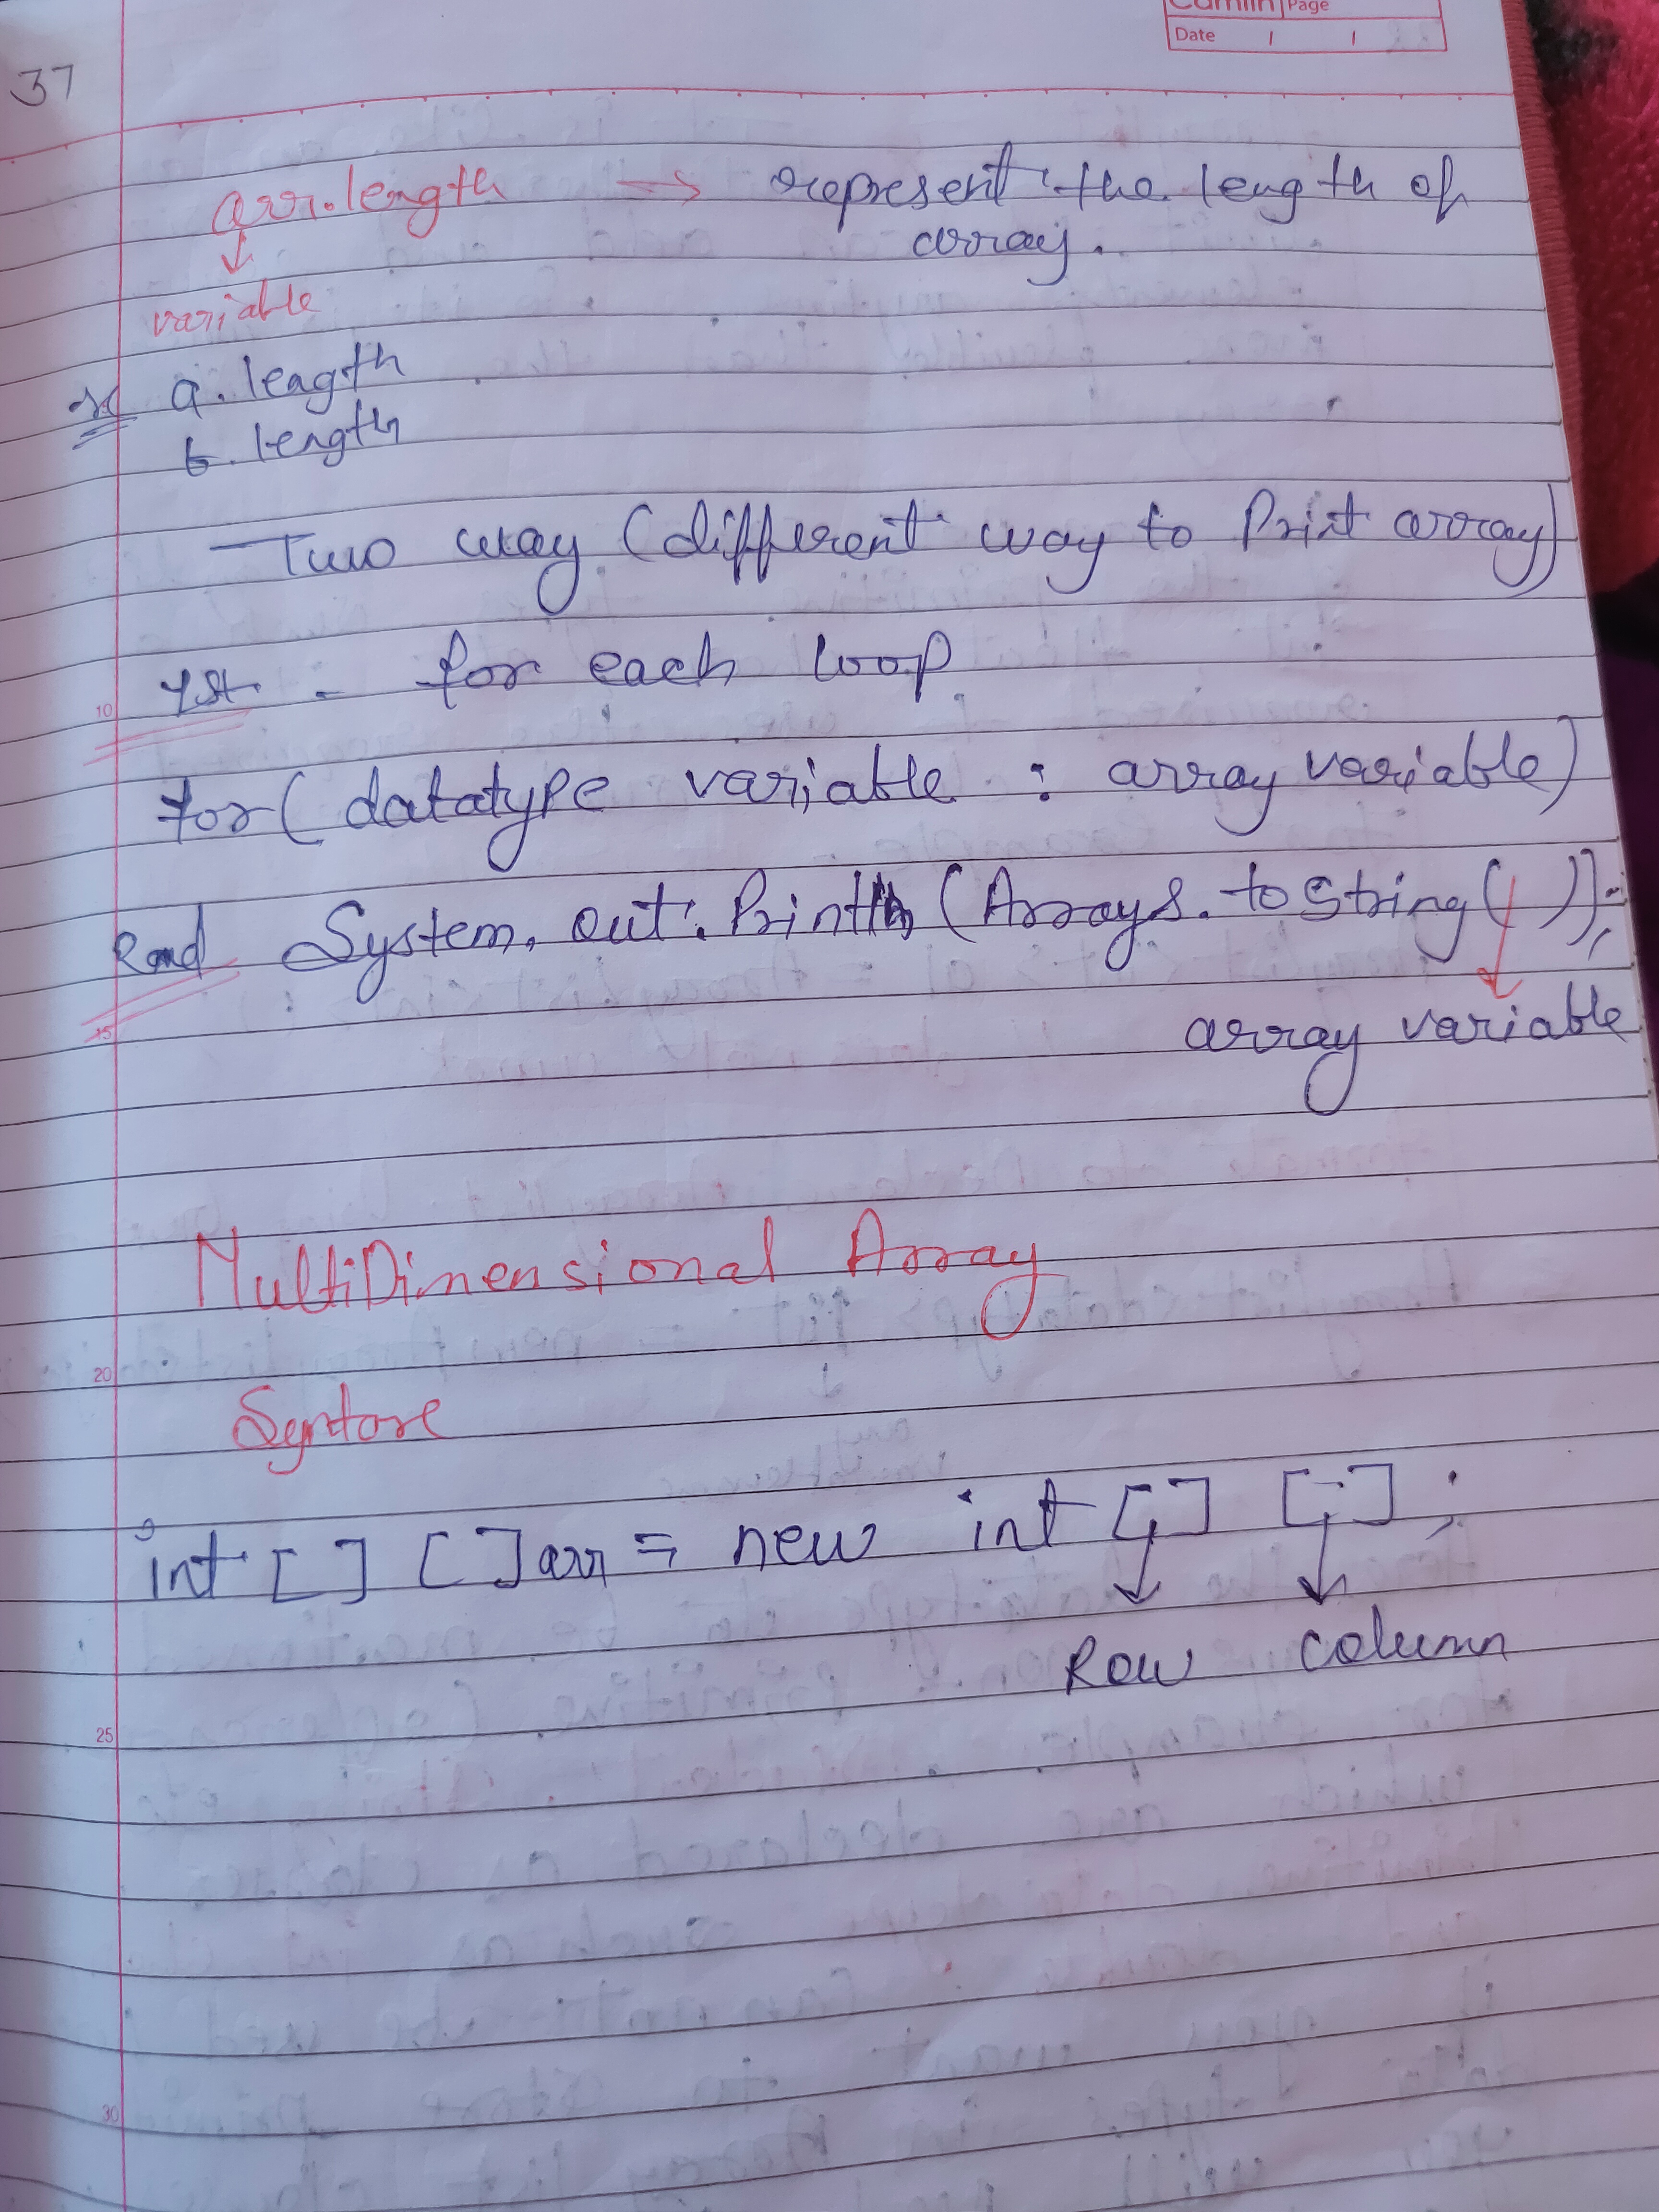 Camlin Page
Date / /
37
arr.length → represent the length of
array.
↓
variable
a. length
b. length
Two way (different way to Print array)
1st - for each loop
10
for( datatype variable : array variable)
2nd System. out. Println (Arrays. to String( ));
15
array variable
MultiDimensional Array
20
Syntax
int [ ] [ ] arr = new int [ ] [ ] ;
Row column
25
30